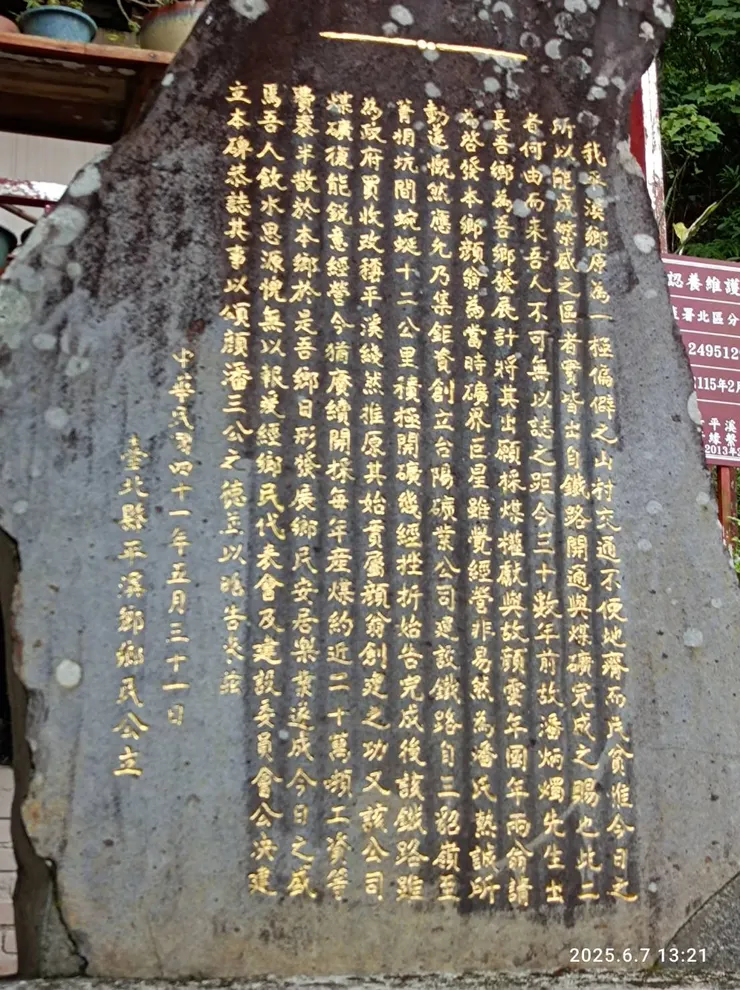 我平溪鄉原為一極偏僻之山村交通不便地瘠而民貧惟今日之
所以能成繁盛之區者實皆出自鐵路開通與煤礦完成之賜也此二
者何由而來吾人不可無以誌之距今三十數年前故潘炳燭先生出
長吾鄉為吾鄉發展計將其出願採煤權獻與故顏雲年國年兩翁請
為啓發本鄉顏翁為當時礦界巨星雖覺經營非易然為潘氏熱誠所
動遂慨然應允乃集鉅資創立台陽礦業公司建設鐵路自三貂嶺至
菁桐坑間蜿蜒十二公里積極開礦幾經挫折始告完成後該鐵路雖
為政府買收改稱平溪線然推原其始實屬顏翁創建之功又該公司
煤礦復能銳意經營今猶賡續開採每年産煤約近二十萬頓工資等
費泰半散於本鄉於是吾鄉日形發展鄉民安居樂業遂成今日之盛
焉吾人飲水思源愧無以報爰經鄉民代表會及建設委員會公決建
立本碑恭誌其事以頌顏潘三公之德並以昭告來茲
中華民國四十一年五月三十一日
臺北縣平溪鄉鄉民公立
認養維護
署北區分
249512
115年2月
平溪
緣繫
2013年
2025.6.7 13:21